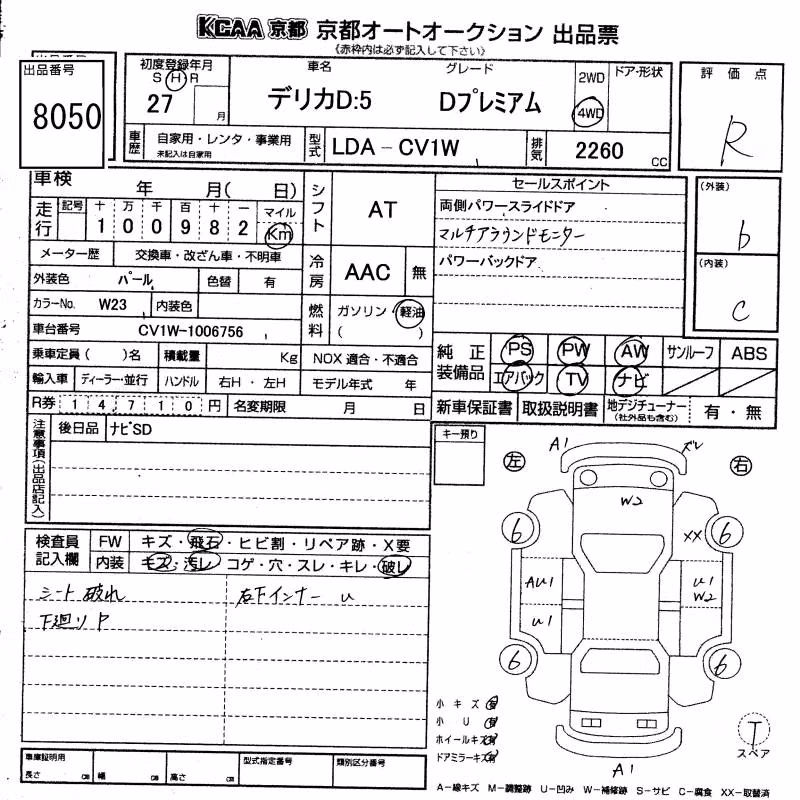 KCAA 京都 京都オートオークション 出品票
《赤枠内は必ず記入して下さい》
出品番号
8050
初度登録年月
S H R
27 月
車名
デリカD:5
グレード
Dプレミアム
2WD
4WD
ドア・形状
評価点
R
車歴
自家用・レンタ・事業用
未記入は自家用
型式
LDA-CV1W
排気
2260 CC
車検 年 月( 日)
走行
記号 十 万 千 百 十 一
1 0 0 9 8 2
マイル
Km
メーター歴 交換車・改ざん車・不明車
外装色 パール 色替 有
カラーNo. W23 内装色
車台番号 CV1W-1006756
乗車定員( )名 積載量 Kg
輸入車 ディーラー・並行 ハンドル 右H・左H
R券 1 4,7 1 0 円 名変期限 月 日
シフト AT
冷房 AAC 無
燃料 ガソリン・軽油
( )
NOX 適合・不適合
モデル年式 年
セールスポイント
両側パワースライドドア
マルチアラウンドモニター
パワーバックドア
(外装)
b
(内装)
C
純正装備品
PS PW AW サンルーフ ABS
エアバック TV ナビ
新車保証書 取扱説明書 地デジチューナー
(社外品も含む)
有・無
注意事項(出品店記入)
後日品 ナビSD
キー預り
検査員記入欄
FW キズ・飛石・ヒビ割・リペア跡・X要
内装 キズ・汚レ・コゲ・穴・スレ・キレ・破レ
シート破れ 右下インナー U
下廻りP
左 右
A1 ズレ
W2
6 6
XX
AU1 U1
W2
U1
6 6
A1
小キズ 有
小U 有
ホイールキズ 有
ドアミラーキズ 有
T
スペア
車庫証明用
長さ cm 幅 cm 高さ cm
型式指定番号
類別区分番号
A-線キズ M-調整跡 U-凹み W-補修跡 S-サビ C-腐食 XX-取替済